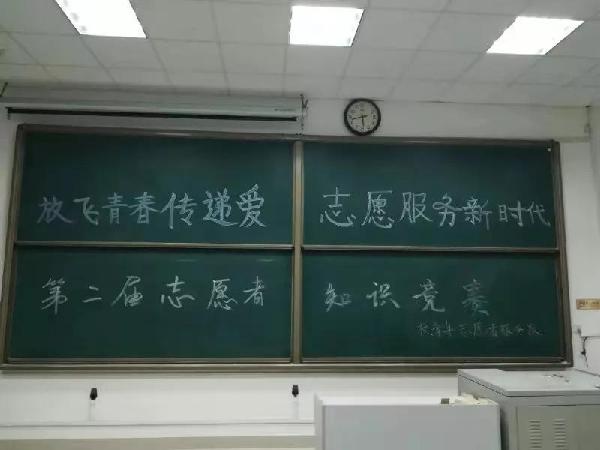 放飞青春传递爱 志愿服务新时代
第二届志愿者 知识竞赛